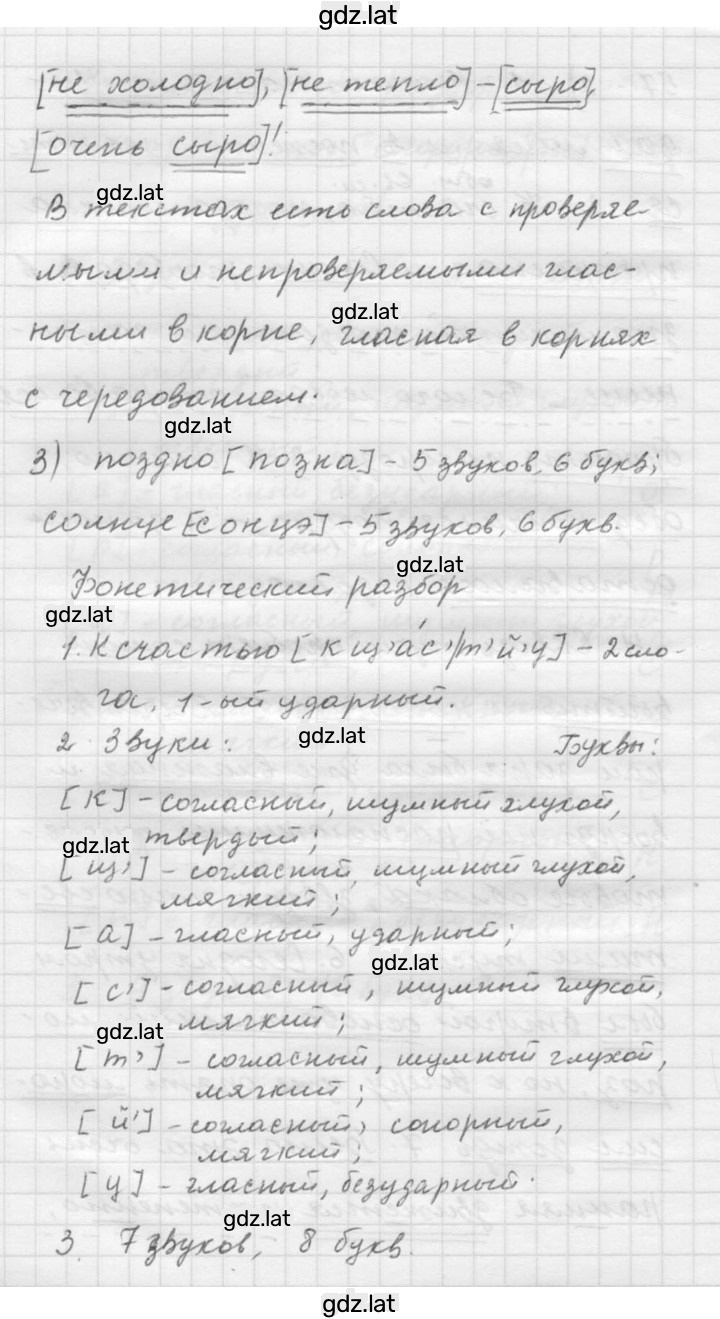 gdz.lat
[не холодно], [не тепло] – [сыро],
[очень сыро]!
gdz.lat
В текстах есть слова с проверяе-
мыми и непроверяемыми глас-
gdz.lat
ными в корне, гласная в корнях
с чередованием.
gdz.lat
3) поздно [позна] – 5 звуков, 6 букв;
солнце [сонцэ] – 5 звуков, 6 букв.
gdz.lat
Фонетический разбор
gdz.lat
1. К счастью [к щ'а́с'/т'й'у] – 2 сло-
га, 1-ый ударный.
gdz.lat
2. Звуки: Буквы:
[к] – согласный, шумный глухой,
gdz.lat твердый;
[щ'] – согласный, шумный глухой,
мягкий;
[а] – гласный, ударный;
gdz.lat
[с'] – согласный, шумный глухой,
gdz.lat мягкий;
[т'] – согласный, шумный глухой,
мягкий;
[й'] – согласный, сонорный,
мягкий;
[у] – гласный, безударный.
gdz.lat
3. 7 звуков, 8 букв.
gdz.lat